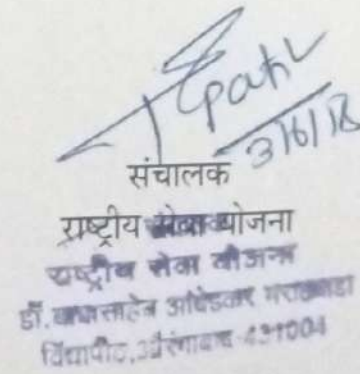 Tpatil
3/6/18
संचालक
राष्ट्रीय सेवा योजना
राष्ट्रीय सेवा योजना
डॉ. बाबासाहेब आंबेडकर मराठवाडा
विद्यापीठ, औरंगाबाद-431004